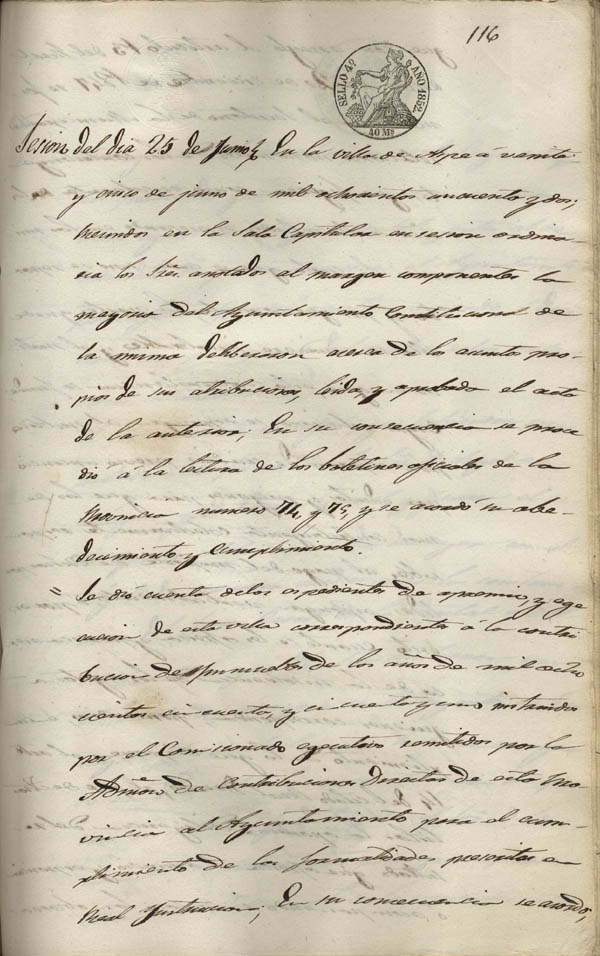 116
SELLO 4º AÑO 1852.
40 Ms
Sesion del dia 25 de Junio En la villa de Aspe á veinte
y cinco de junio de mil ochocientos cincuenta y dos;
Reunidos en la Sala Capitular en sesion ordina-
ria los Sres. anotados al margen componentes la
mayoria del Ayuntamiento Constitucional de
la misma deliberaron acerca de los asuntos pro-
pios de sus atribuciones, leida, y aprobada el acta
de la anterior; En su consecuencia se proce
dió á la lectura de los boletines oficiales de la
Provincia numero 74, y 75, y se acordó su obe-
decimiento y cumplimiento.
= Se dió cuenta de los espedientes de apremio, y ege
cucion de esta villa correspondientes á la contri
bucion de Inmuebles de los años de mil ocho
cientos cincuenta, y cincuenta y uno instruidos
por el Comisionado egecutivo remitidos por la
Admon de Contribuciones Directas de esta Pro
vincia al Ayuntamiento para el cum-
plimiento de las formalidades prescritas en
Real Instruccion; En su consecuencia se acordó,